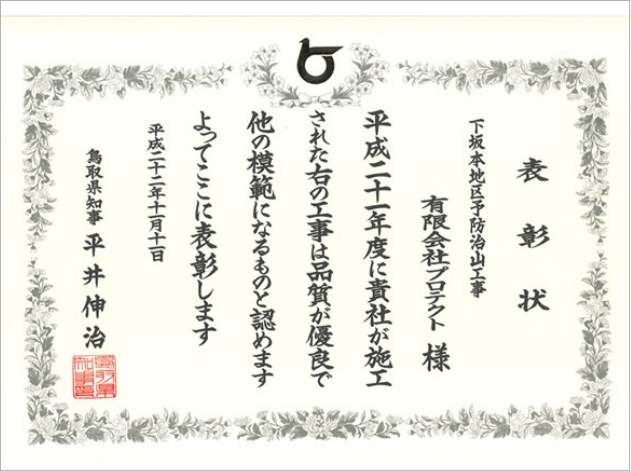 表彰状
下坂本地区予防治山工事
有限会社プロテクト 様
平成二十一年度に貴社が施工
された右の工事は品質が優良で
他の模範になるものと認めます
よってここに表彰します
平成二十二年十月十一日
鳥取県知事 平井伸治